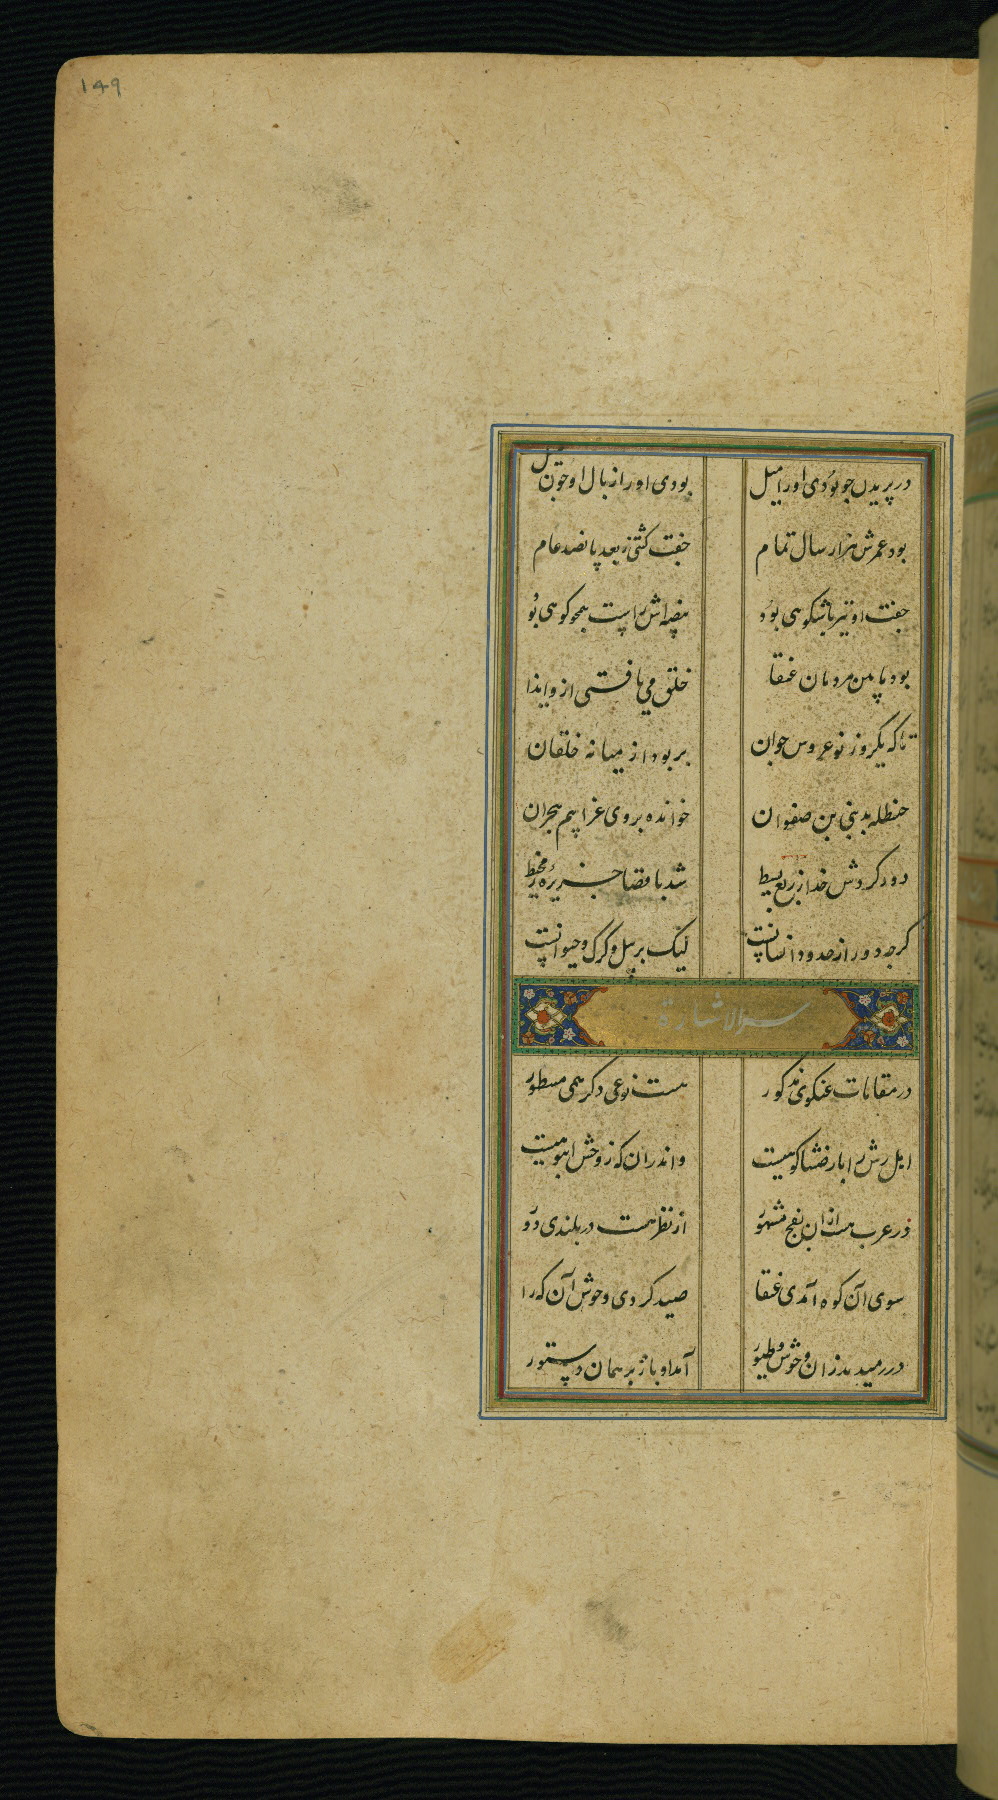 ۱۴۹
در پریدن چو بودی او را میل بودی او را ز بال او چون سیل
بود عمرش هزار سال تمام جفت کشتی ز بعد پانصد عام
جفت او نیز باشکوهی بود بیضه‌اش راست همچو کوهی بود
بود با من مردمان عنقا خلق می یافتی ازو ایذا
تا که یکروز نوعروس جوان بربود از میانه خلقان
حنظله بد نبی بن صفوان خوانده بر وی عزایم هجران
دور کردش خدا ز ربع بسیط شد باقصا جزیره محیط
کرچه دور از حدود انسانست لیک بر پیل و کرک و حیوانست
سر الاشارة
در مقامات عنکوی مذکور هست نوعی دکر همی مسطور
اهل رش را بارضشا کوهیست واندران که ز وحش انبوهیست
در عرب هست از ان بفج مشهور از نظر هست در بلندی دور
سوی آن کوه آمدی عنقا صید کردی وحوش آن که را
در رمیدند زان وحوش و طیور آمد او باز بر همان دستور